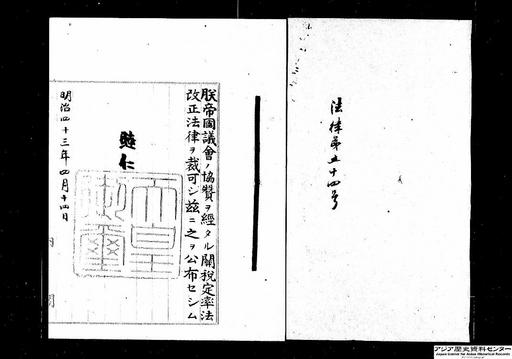 法律第五十四号
朕帝國議會ノ協贊ヲ經タル關稅定率法
改正法律ヲ裁可シ茲ニ之ヲ公布セシム
睦仁
天皇御璽
明治四十三年四月十四日
アジア歴史資料センター
Japan Center for Asian Historical Records